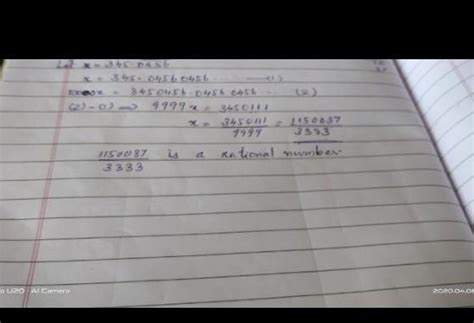 Let x = 345.0456
x = 345.04560456 ...... (1)
x = 3450456.04560456 ... (2)
(2) - (1) ⟹ 9999x = 3450111
x = 3450111/9999 = 1150037/3333
1150037/3333 is a rational number.
U20 | AI Camera
2020.04.0